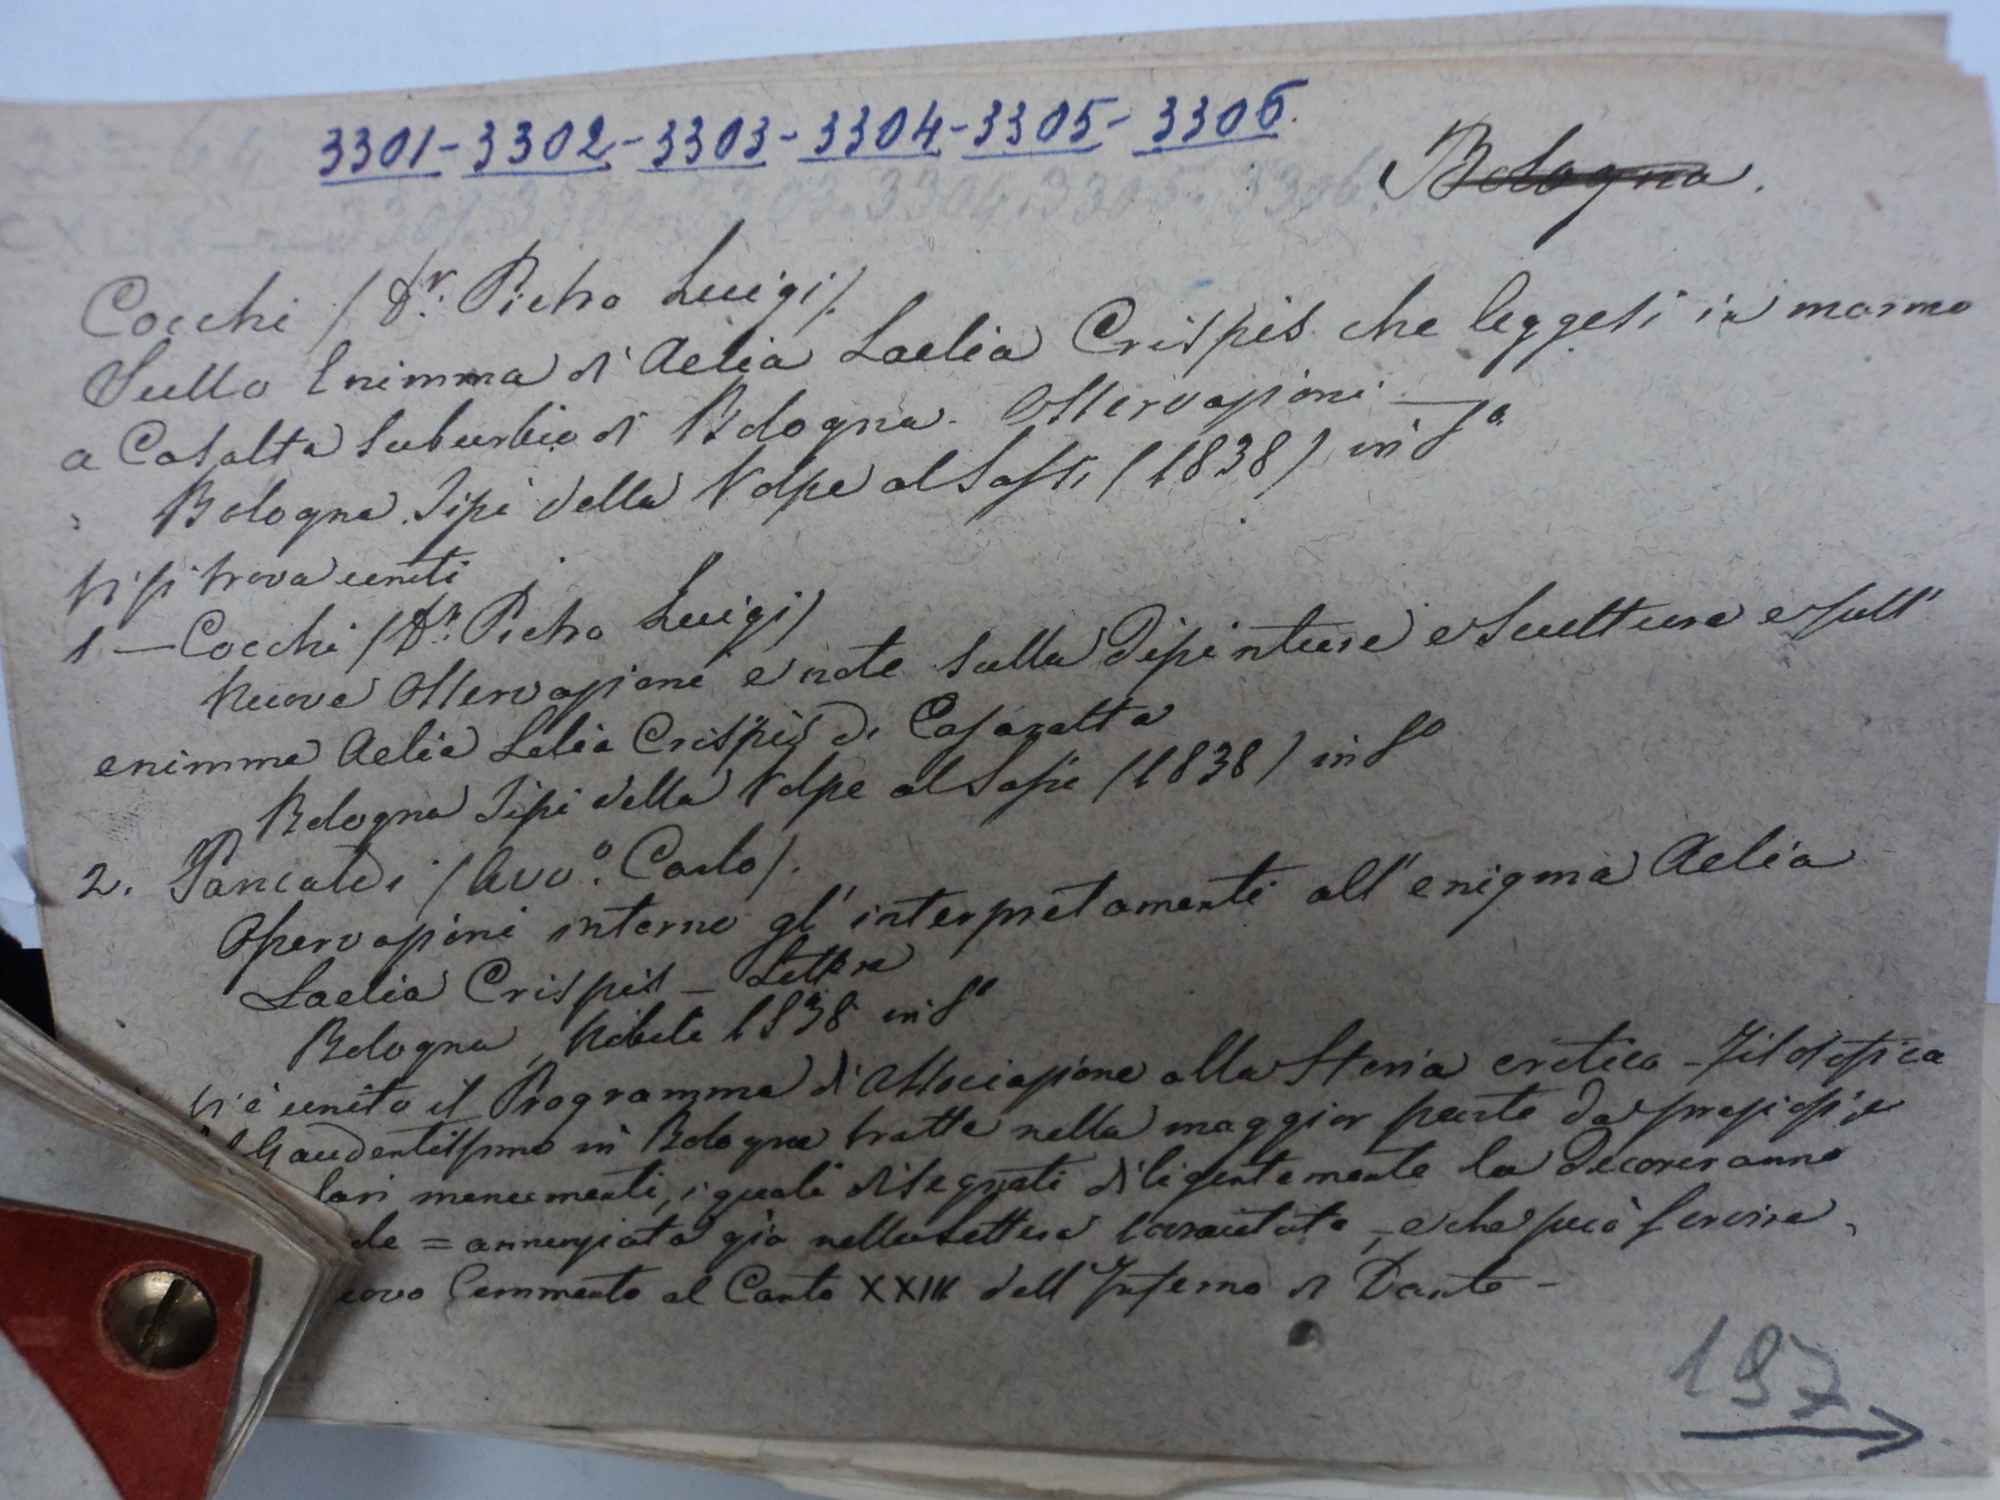 3301-3302-3303-3304-3305-3306.
Bologna.
Cocchi (Dr. Pietro Luigi).
Sullo Enimma di Aelia Laelia Crispis che leggesi in marmo
a Casalta suburbio di Bologna. Osservazioni
Bologna Tipi della Volpe al Sassi (1838) in 8°
Vi si trova uniti
1 — Cocchi (Dr. Pietro Luigi)
Nuove Osservazioni e note sulla Dipinture e Scultture e sull'
enimme Aelia Lelia Crispis di Casaralta
Bologna Tipi della Volpe al Sassi (1838) in 8°
2. Pancaldi (Avv°. Carlo).
Osservazioni intorno gl' interpretamenti all' enigma Aelia
Laelia Crispis — Lettera
Bologna, Nobili 1838 in 8°
Vi è unito il Programma di Associazione alla Storia critico-Filosofica
Gaudentissimo in Bologna tratta nella maggior parte da preziosi e
lari monumenti, i quali disegnati diligentemente la decoreranno
de = annunziata già nella lettera, e che può servire
uovo Commento al Canto XXIII dell' Inferno di Dante -
197